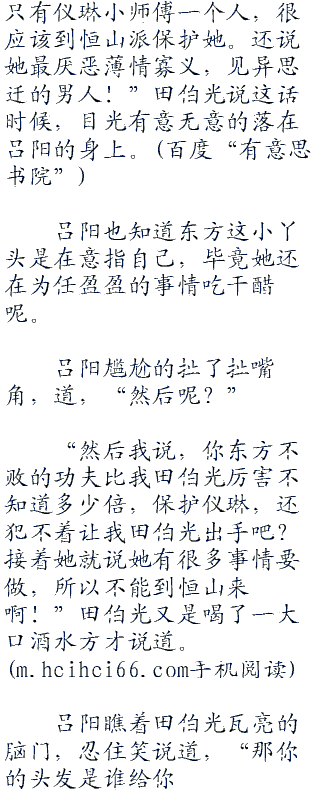 只有仪琳小师傅一个人，很
应该到恒山派保护她。还说
她最厌恶薄情寡义，见异思
迁的男人！”田伯光说这话
时候，目光有意无意的落在
吕阳的身上。(百度“有意思
书院”)
吕阳也知道东方这小丫
头是在意指自己，毕竟她还
在为任盈盈的事情吃干醋
呢。
吕阳尴尬的扯了扯嘴
角，道，“然后呢？”
“然后我说，你东方不
败的功夫比我田伯光厉害不
知道多少倍，保护仪琳，还
犯不着让我田伯光出手吧？
接着她就说她有很多事情要
做，所以不能到恒山来
啊！”田伯光又是喝了一大
口酒水方才说道。
(m.hcihci66.com手机阅读)
吕阳瞧着田伯光瓦亮的
脑门，忍住笑说道，“那你
的头发是谁给你